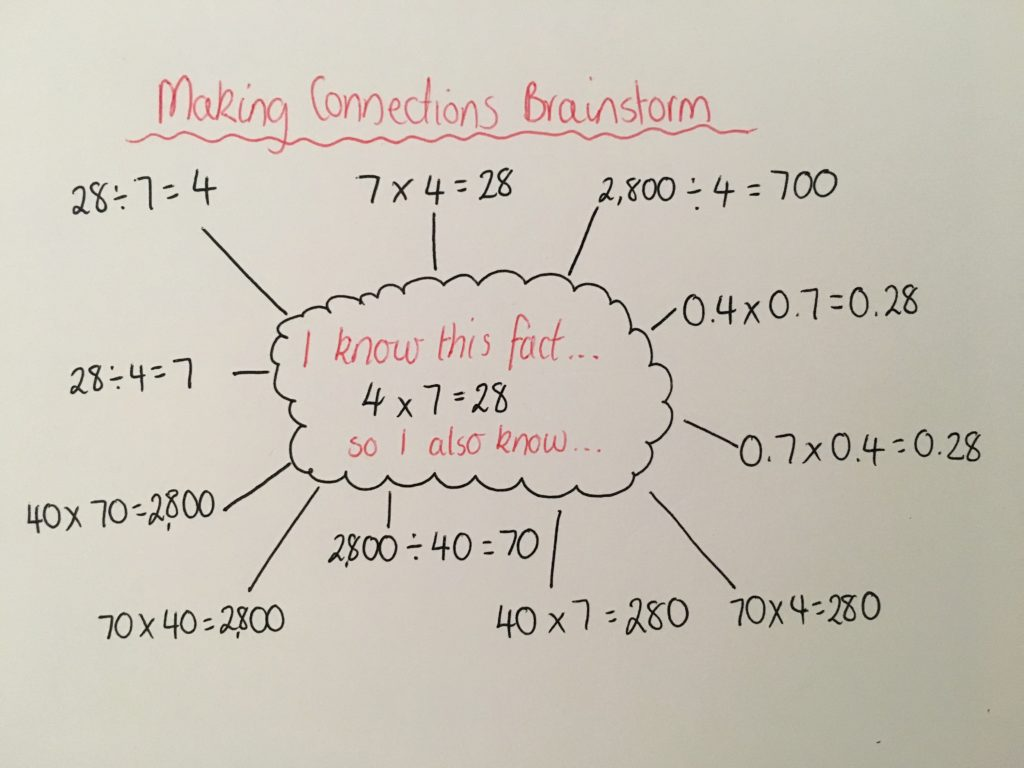 Making Connections Brainstorm
28÷7=4
7 x 4 = 28
2,800 ÷ 4 = 700
0.4 x 0.7 = 0.28
I know this fact...
28÷4=7
4 x 7 = 28
so I also know...
0.7 x 0.4 = 0.28
40 x 70 = 2,800
2,800 ÷ 40 = 70
70 x 40 = 2,800
40 x 7 = 280
70 x 4 = 280